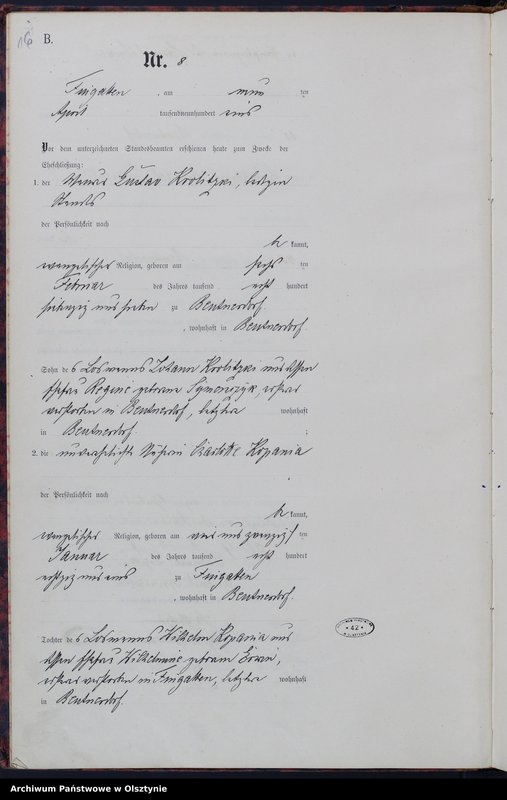 B.
Nr. 8
Fingatten, am neun ten
April tausendneunhundert eins
Vor dem unterzeichneten Standesbeamten erschienen heute zum Zwecke der
Eheschließung:
1. der Gustav Krolitzki, ledigen
Standes
der Persönlichkeit nach
be kannt,
evangelischer Religion, geboren am sechs ten
Februar des Jahres tausend acht hundert
siebenzig und sieben zu Beutnerdorf
, wohnhaft in Beutnerdorf
Sohn des Losmanns Johann Krolitzki und dessen
Ehefrau Regine geborene, ersterer
verstorben in Beutnerdorf, letztere wohnhaft
in Beutnerdorf.
2. die unverehelichte Charlotte Kopania
der Persönlichkeit nach
be kannt,
evangelischer Religion, geboren am ein und zwanzigs ten
Januar des Jahres tausend acht hundert
achtzig und eins zu Fingatten
, wohnhaft in Beutnerdorf
Tochter des Losmanns Wilhelm Kopania und
dessen Ehefrau Wilhelmine geborene
ersterer verstorben in Fingatten, letztere wohnhaft
in Beutnerdorf.
42
Archiwum Państwowe w Olsztynie